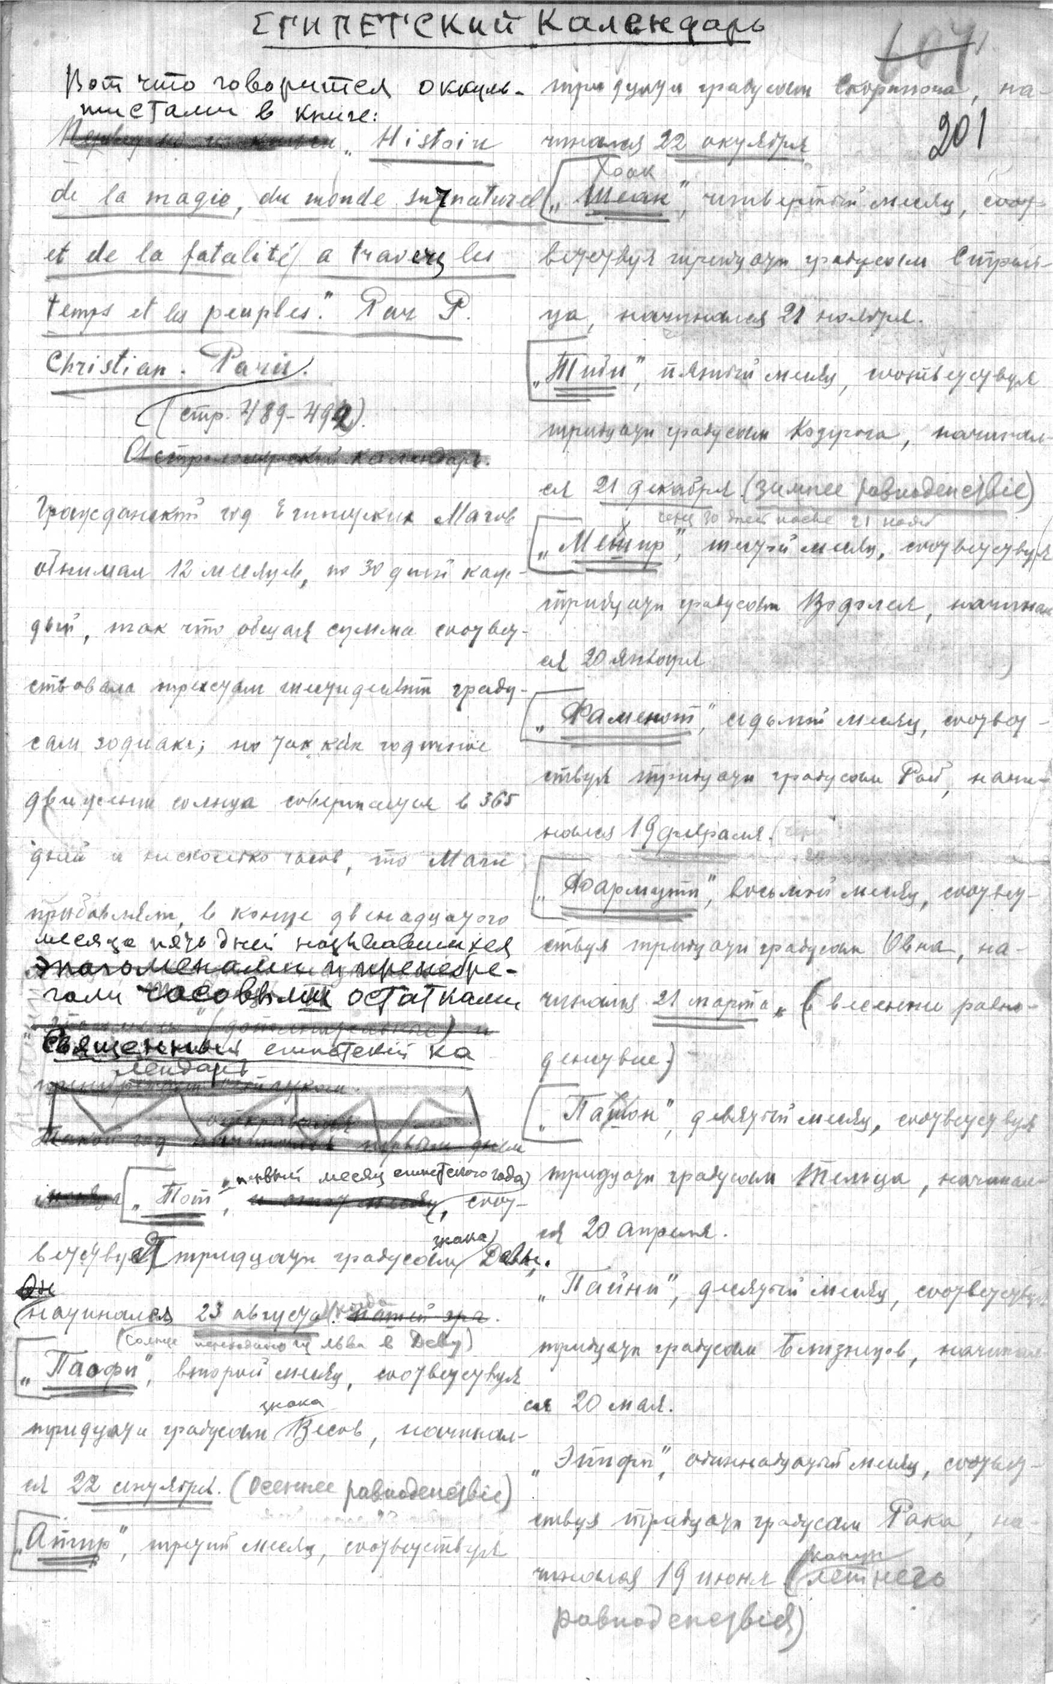 ЕГИПЕТСКИЙ Календарь
201
Вот что говорится оккуль-
тистами в книге:
„Histoire
de la magie, du monde surnaturel
et de la fatalité a travers les
temps et les peuples". Par P.
Christian. Paris.
(стр. 489-492).
Астрономический календарь.
Гражданский год Египетских Магов
обнимал 12 месяцев, по 30 дней каж-
дый, так что общая сумма соответ-
ствовала тремстам шестидесяти граду-
сам зодиака; но так как годичное
движение солнца совершается в 365
дней и несколько часов, то Маги
прибавляли, в конце двенадцатого
месяца пять дней называвшихся
эпагоменами и пренебре-
гали часовыми остатками
(дополнительные) и
Священный египетский ка
лендарь
„Тот", „первый месяц египетского года) соот-
ветствуя тридцати градусам знака Девы.
Он
начинался 23 августа. нашей эры.
(Солнце переходило из Льва в Деву)
„Паофи", второй месяц, соответствуя
тридцати градусам знака Весов, начинал-
ся 22 сентября. (осеннее равноденствие)
„Атир", третий месяц, соответствуя
тридцати градусам Скорпиона, на-
чинался 22 октября
Хоак
„Шеак", четвертый месяц, соот-
ветствуя тридцати градусам Стрель-
ца, начинался 21 ноября.
„Тиби", пятый месяц, соответствуя
тридцати градусам Козерога, начинал-
ся 21 декабря (зимнее равноденствие)
через 30 дней после 21 нояб
„Мехир", шестой месяц, соответствуя
тридцати градусам Водолея, начинал
ся 20 января
„Фаменот", седьмой месяц, соответ-
ствуя тридцати градусам Рыб, начи-
нался 19 февраля.
„Фармути", восьмой месяц, соответ-
ствуя тридцати градусам Овна, на-
чинался 21 марта„ (весеннее равно-
денствие)
„Пашон", девятый месяц, соответствуя
тридцати градусам Тельца, начинал-
ся 20 апреля.
„Пайни", десятый месяц, соответствуя
тридцати градусам Близнецов, начинал
ся 20 мая.
„Эпифи", одиннадцатый месяц, соответ-
ствуя тридцати градусам Рака, на-
чинался 19 июня (канун летнего
равноденствия)